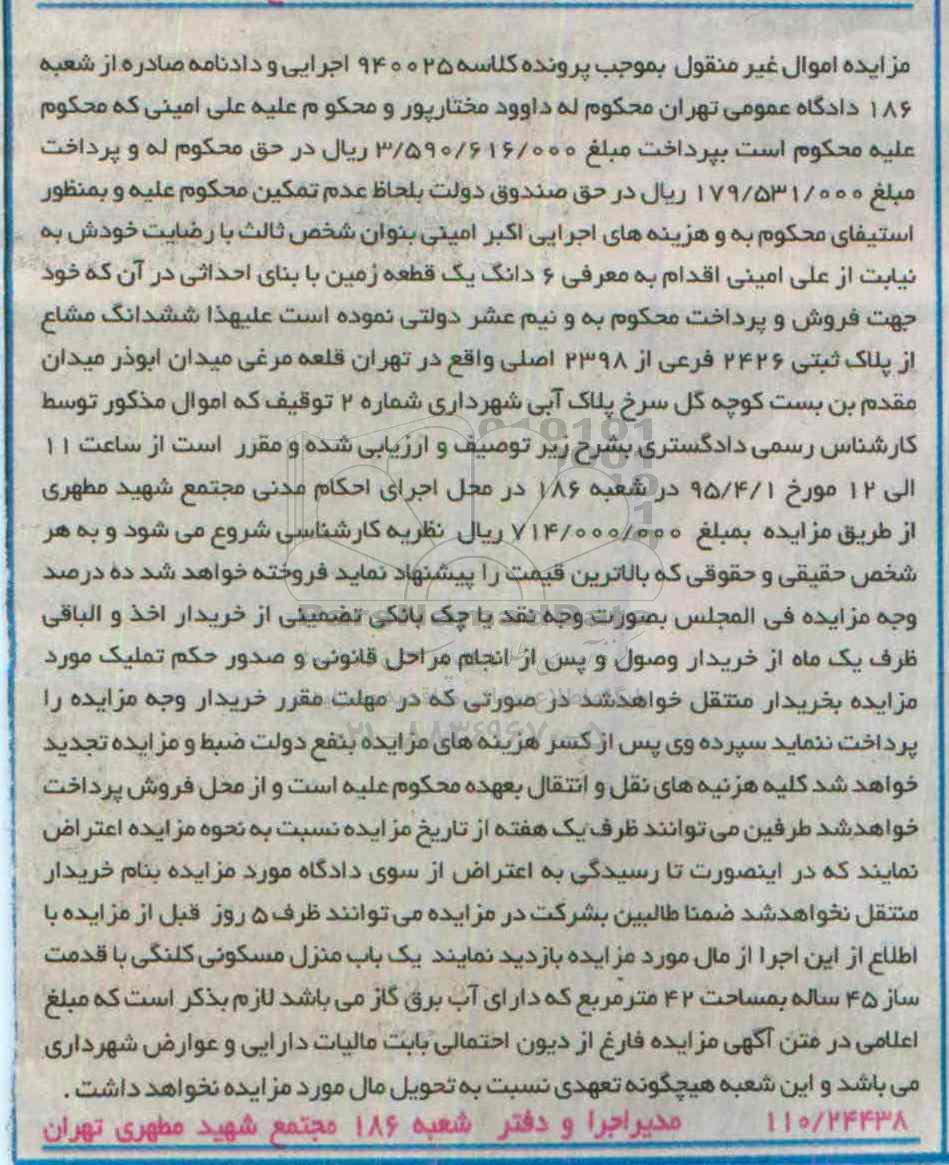 مزایده اموال غیر منقول بموجب پرونده کلاسه ۹۴۰۰۲۵ اجرایی و دادنامه صادره از شعبه
۱۸۶ دادگاه عمومی تهران محکوم له داوود مختارپور و محکو م علیه علی امینی که محکوم
علیه محکوم است بپرداخت مبلغ ۳/۵۹۰/۶۱۶/۰۰۰ ریال در حق محکوم له و پرداخت
مبلغ ۱۷۹/۵۳۱/۰۰۰ ریال در حق صندوق دولت بلحاظ عدم تمکین محکوم علیه و بمنظور
استیفای محکوم به و هزینه های اجرایی اکبر امینی بنوان شخص ثالث با رضایت خودش به
نیابت از علی امینی اقدام به معرفی ۶ دانگ یک قطعه زمین با بنای احداثی در آن که خود
جهت فروش و پرداخت محکوم به و نیم عشر دولتی نموده است علیهذا ششدانگ مشاع
از پلاک ثبتی ۲۴۲۶ فرعی از ۲۳۹۸ اصلی واقع در تهران قلعه مرغی میدان ابوذر میدان
مقدم بن بست کوچه گل سرخ پلاک آبی شهرداری شماره ۲ توقیف که اموال مذکور توسط
کارشناس رسمی دادگستری بشرح زیر توصیف و ارزیابی شده و مقرر است از ساعت ۱۱
الی ۱۲ مورخ ۹۵/۴/۱ در شعبه ۱۸۶ در محل اجرای احکام مدنی مجتمع شهید مطهری
از طریق مزایده بمبلغ ۷۱۴/۰۰۰/۰۰۰ ریال نظریه کارشناسی شروع می شود و به هر
شخص حقیقی و حقوقی که بالاترین قیمت را پیشنهاد نماید فروخته خواهد شد ده درصد
وجه مزایده فی المجلس بصورت وجه نقد یا چک بانکی تضمینی از خریدار اخذ و الباقی
ظرف یک ماه از خریدار وصول و پس از انجام مراحل قانونی و صدور حکم تملیک مورد
مزایده بخریدار منتقل خواهدشد در صورتی که در مهلت مقرر خریدار وجه مزایده را
پرداخت ننماید سپرده وی پس از کسر هزینه های مزایده بنفع دولت ضبط و مزایده تجدید
خواهد شد کلیه هزنیه های نقل و انتقال بعهده محکوم علیه است و از محل فروش پرداخت
خواهدشد طرفین می توانند ظرف یک هفته از تاریخ مزایده نسبت به نحوه مزایده اعتراض
نمایند که در اینصورت تا رسیدگی به اعتراض از سوی دادگاه مورد مزایده بنام خریدار
منتقل نخواهدشد ضمنا طالبین بشرکت در مزایده می توانند ظرف ۵ روز قبل از مزایده با
اطلاع از این اجرا از مال مورد مزایده بازدید نمایند یک باب منزل مسکونی کلنگی با قدمت
ساز ۴۵ ساله بمساحت ۴۲ مترمربع که دارای آب برق گاز می باشد لازم بذکر است که مبلغ
اعلامی در متن آگهی مزایده فارغ از دیون احتمالی بابت مالیات دارایی و عوارض شهرداری
می باشد و این شعبه هیچگونه تعهدی نسبت به تحویل مال مورد مزایده نخواهد داشت .
۱۱۰/۲۴۴۳۸ مدیراجرا و دفتر شعبه ۱۸۶ مجتمع شهید مطهری تهران